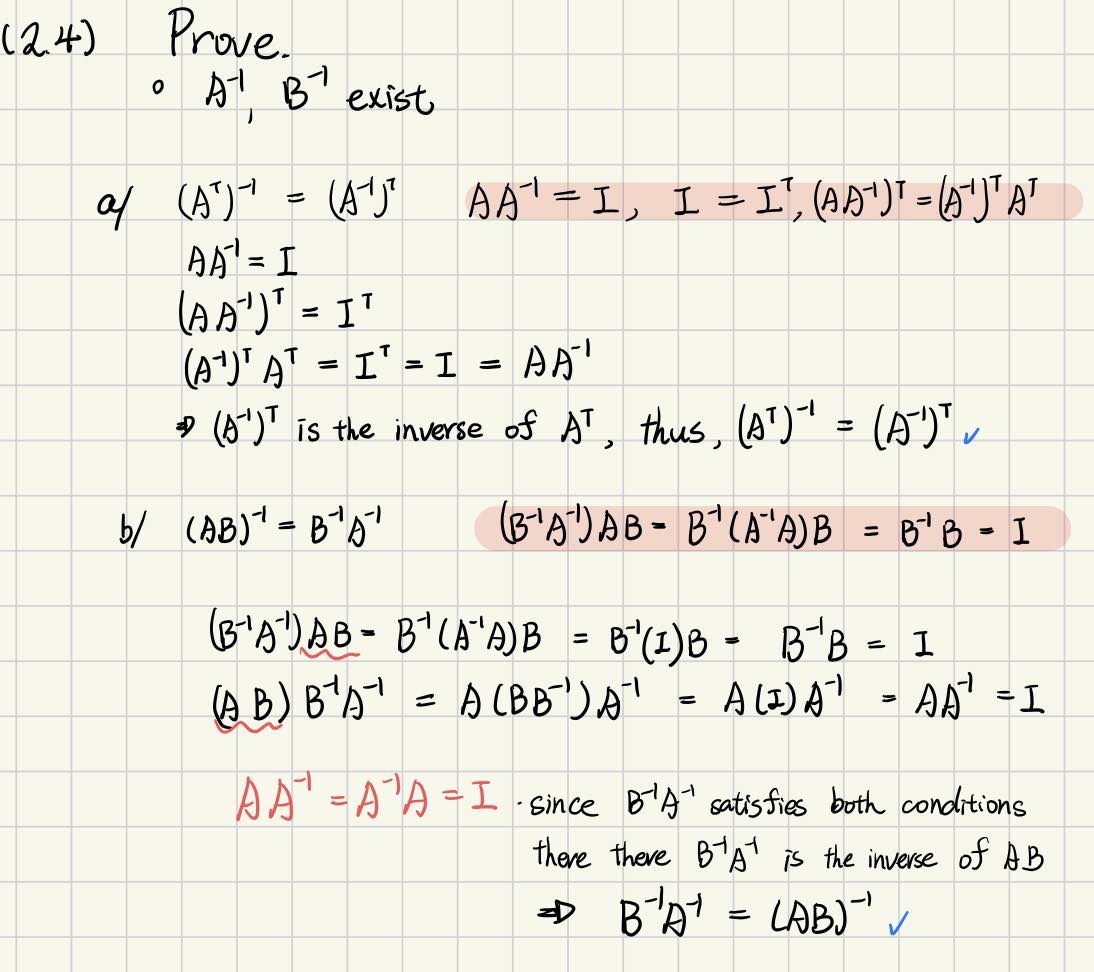 (2.4) Prove.
∘ A⁻¹, B⁻¹ exist
a/ (Aᵀ)⁻¹ = (A⁻¹)ᵀ AA⁻¹ = I, I = Iᵀ, (AA⁻¹)ᵀ = (A⁻¹)ᵀAᵀ
AA⁻¹ = I
(AA⁻¹)ᵀ = Iᵀ
(A⁻¹)ᵀAᵀ = Iᵀ = I = AA⁻¹
⇒ (A⁻¹)ᵀ is the inverse of Aᵀ, thus, (Aᵀ)⁻¹ = (A⁻¹)ᵀ ✓
b/ (AB)⁻¹ = B⁻¹A⁻¹ (B⁻¹A⁻¹)AB = B⁻¹(A⁻¹A)B = B⁻¹B = I
(B⁻¹A⁻¹)AB = B⁻¹(A⁻¹A)B = B⁻¹(I)B = B⁻¹B = I
(AB)B⁻¹A⁻¹ = A(BB⁻¹)A⁻¹ = A(I)A⁻¹ = AA⁻¹ = I
AA⁻¹ = A⁻¹A = I · since B⁻¹A⁻¹ satisfies both conditions
there there B⁻¹A⁻¹ is the inverse of AB
⇒ B⁻¹A⁻¹ = (AB)⁻¹ ✓